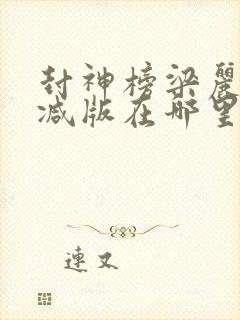 封神榜梁麗
减版在哪里
連又